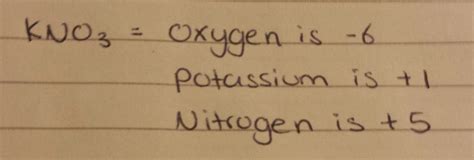 KNO₃ = Oxygen is -6
Potassium is +1
Nitrogen is +5